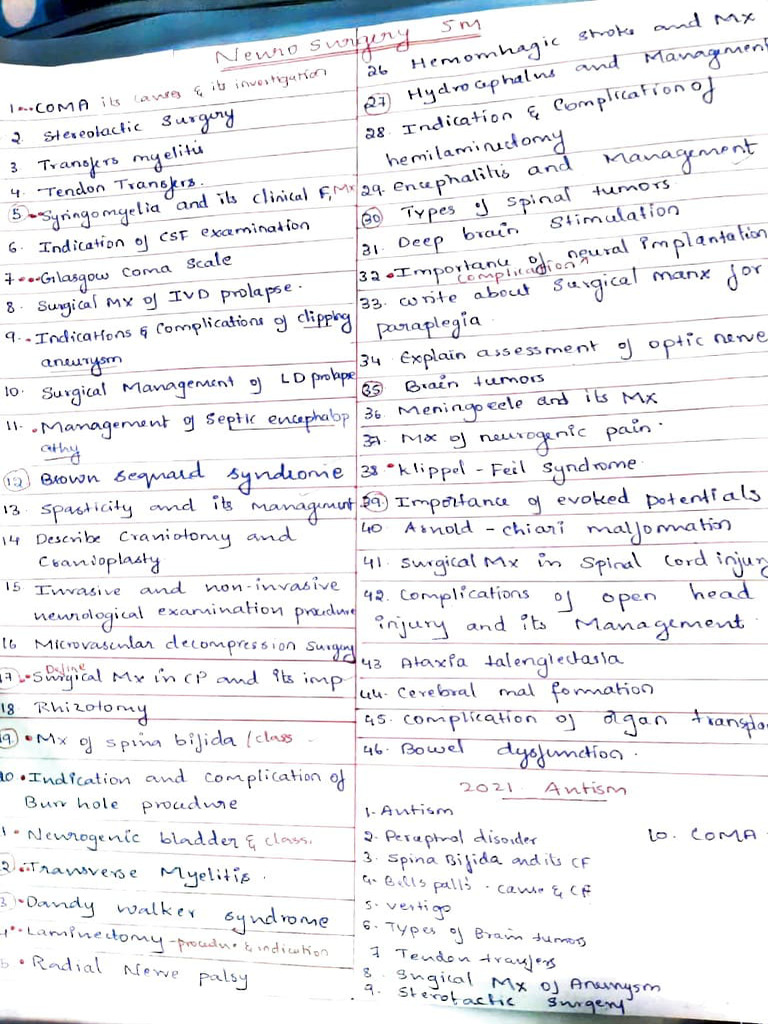 Neuro surgery 5m
1. COMA its causes & its investigation
2. Stereotactic Surgery
3 Transfers myelitis
4. Tendon Transfers.
5 Syringomyelia and its clinical F, Mx
6. Indication of CSF examination
7 Glasgow Coma Scale
8. Surgical Mx of IVD prolapse.
9. Indications & Complications of clipping
aneurysm
10. Surgical Management of LD prolapse
11. Management of Septic encephalop
athy
12 Brown sequard syndrome
13. Spasticity and its management
14 Describe Craniotomy and
Cranioplasty
15 Invasive and non-invasive
neurological examination procedure
16 Microvascular decompression surgery
Define
17. Surgical Mx in CP and its imp
18 Rhizotomy
19. Mx of spina bifida / class
20 Indication and complication of
Burr hole procedure
1 Neurogenic bladder & class.
2 Transverse Myelitis.
3 Dandy walker syndrome
4 Laminectomy - procedure & indication
5 Radial Nerve palsy
26 Hemorrhagic stroke and Mx
27) Hydrocephalus and Management
28. Indication & Complication of
hemilaminectomy
29. encephalitis and Management
30 Types of spinal tumors
31. Deep brain stimulation
32. Importance of neural implantation
complication
33. write about surgical manx for
paraplegia.
34 Explain assessment of optic nerve
35 Brain tumors
36. Meningocele and its Mx
37. Mx of neurogenic pain.
38 Klippel - Feil Syndrome.
39. Importance of evoked potentials
40 Arnold - chiari malformation
41. surgical Mx in Spinal Cord injury
42. Complications of open head
injury and its Management.
43 Ataxia talengiectasia
44. Cerebral mal formation
45. complication of organ transpla
46. Bowel dysfunction.
2021. Autism
1. Autism
2. Perceptual disorder
3. Spina Bifida and its CF
4. Bells palls. cause & CF
5. vertigo
6. Types of Brain tumors
7 Tendon transfers
8. Surgical Mx of Aneurysm
9. Sterotactic surgery
10. COMA